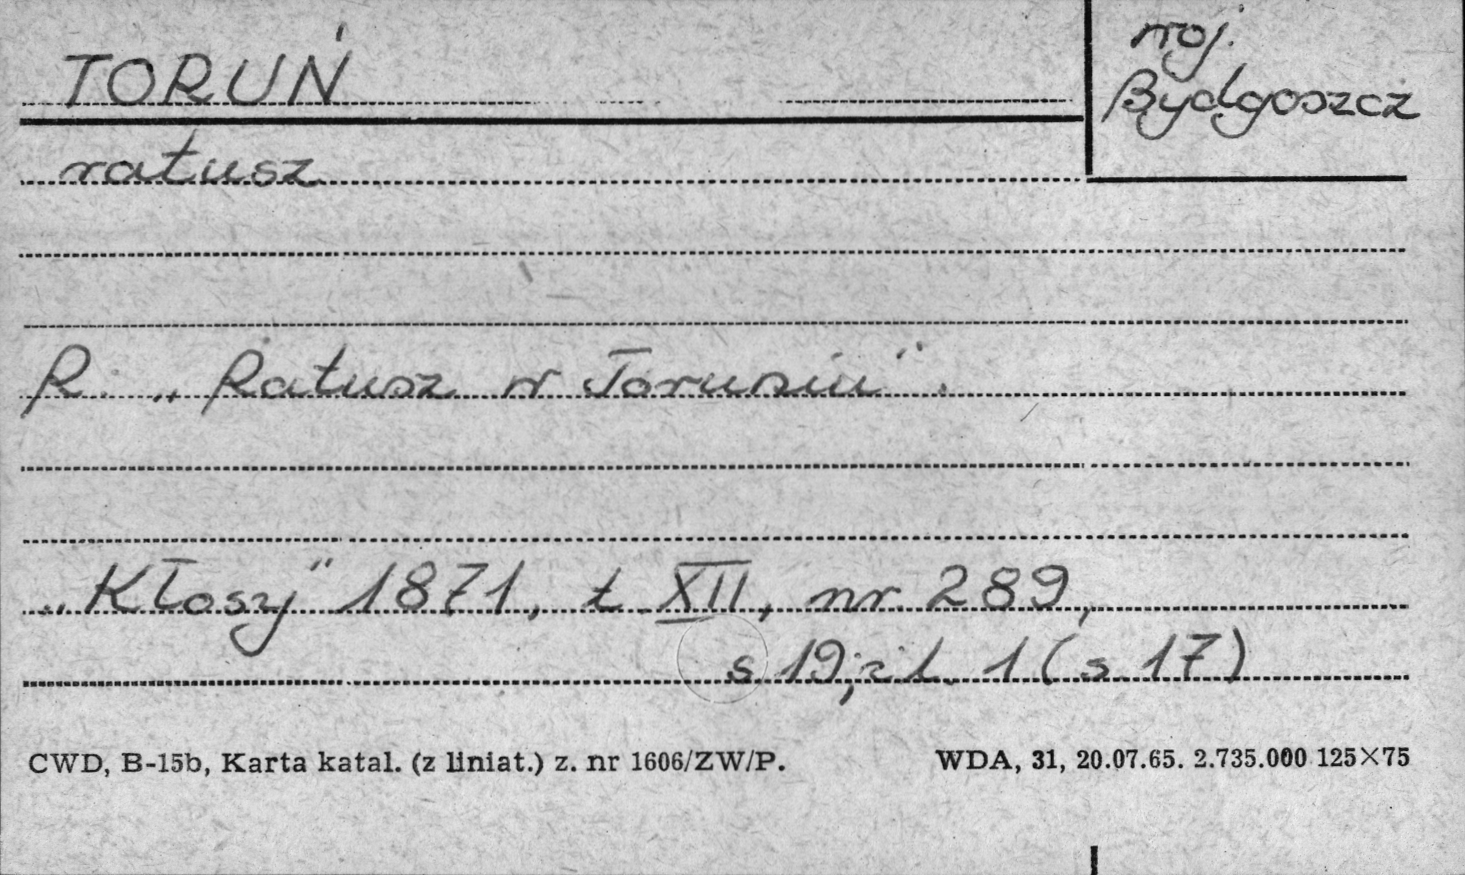 TORUŃ
woj.
Bydgoszcz
ratusz
R. „Ratusz w Toruniu".
„Kłosy" 1871, t. XII, nr. 289,
s 19, il. 1 (s. 17)
CWD, B-15b, Karta katal. (z liniat.) z. nr 1606/ZW/P.
WDA, 31, 20.07.65. 2.735.000 125×75